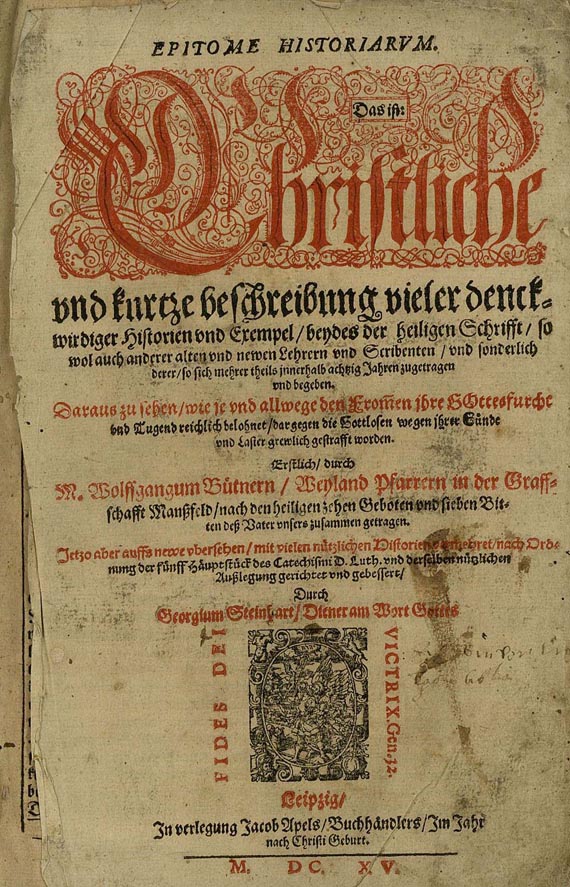 EPITOME HISTORIARVM.
Das ist:
Christliche
vnd kurtze beschreibung vieler denck-
wirdiger Historien vnd Exempel/ beydes der heiligen Schrifft/ so
wol auch anderer alten vnd newen Lehrern vnd Scribenten/ vnd sonderlich
derer/ so sich mehrer theils jnnerhalb achtzig Jahren zugetragen
vnd begeben.
Daraus zu sehen/ wie je vnd allwege den From̃en jhre GOttesfurcht
vnd Tugend reichlich belohnet/ dargegen die Gottlosen wegen jhrer Sünde
vnd Laster grewlich gestrafft worden.
Erstlich/ durch
M. Wolffgangum Bütnern/ Weyland Pfarrern in der Graff-
schafft Manßfeld/ nach den heiligen zehen Geboten vnd sieben Bit-
ten deß Vater vnsers zusammen getragen.
Jetzo aber auffs newe vbersehen/ mit vielen nützlichen Historien gemehret/ nach Ord-
nung der fünff Häuptstück des Catechismi D. Luth. vnd derselben nützlichen
Außlegung gerichtet vnd gebessert/
Durch
Georgium Steinhart/ Diener am Wort Gottes
FIDES DEI
VICTRIX. Gen. 32.
Leipzig/
In verlegung Jacob Apels/ Buchhändlers/ Im Jahr
nach Christi Geburt.
M. DC. XV.